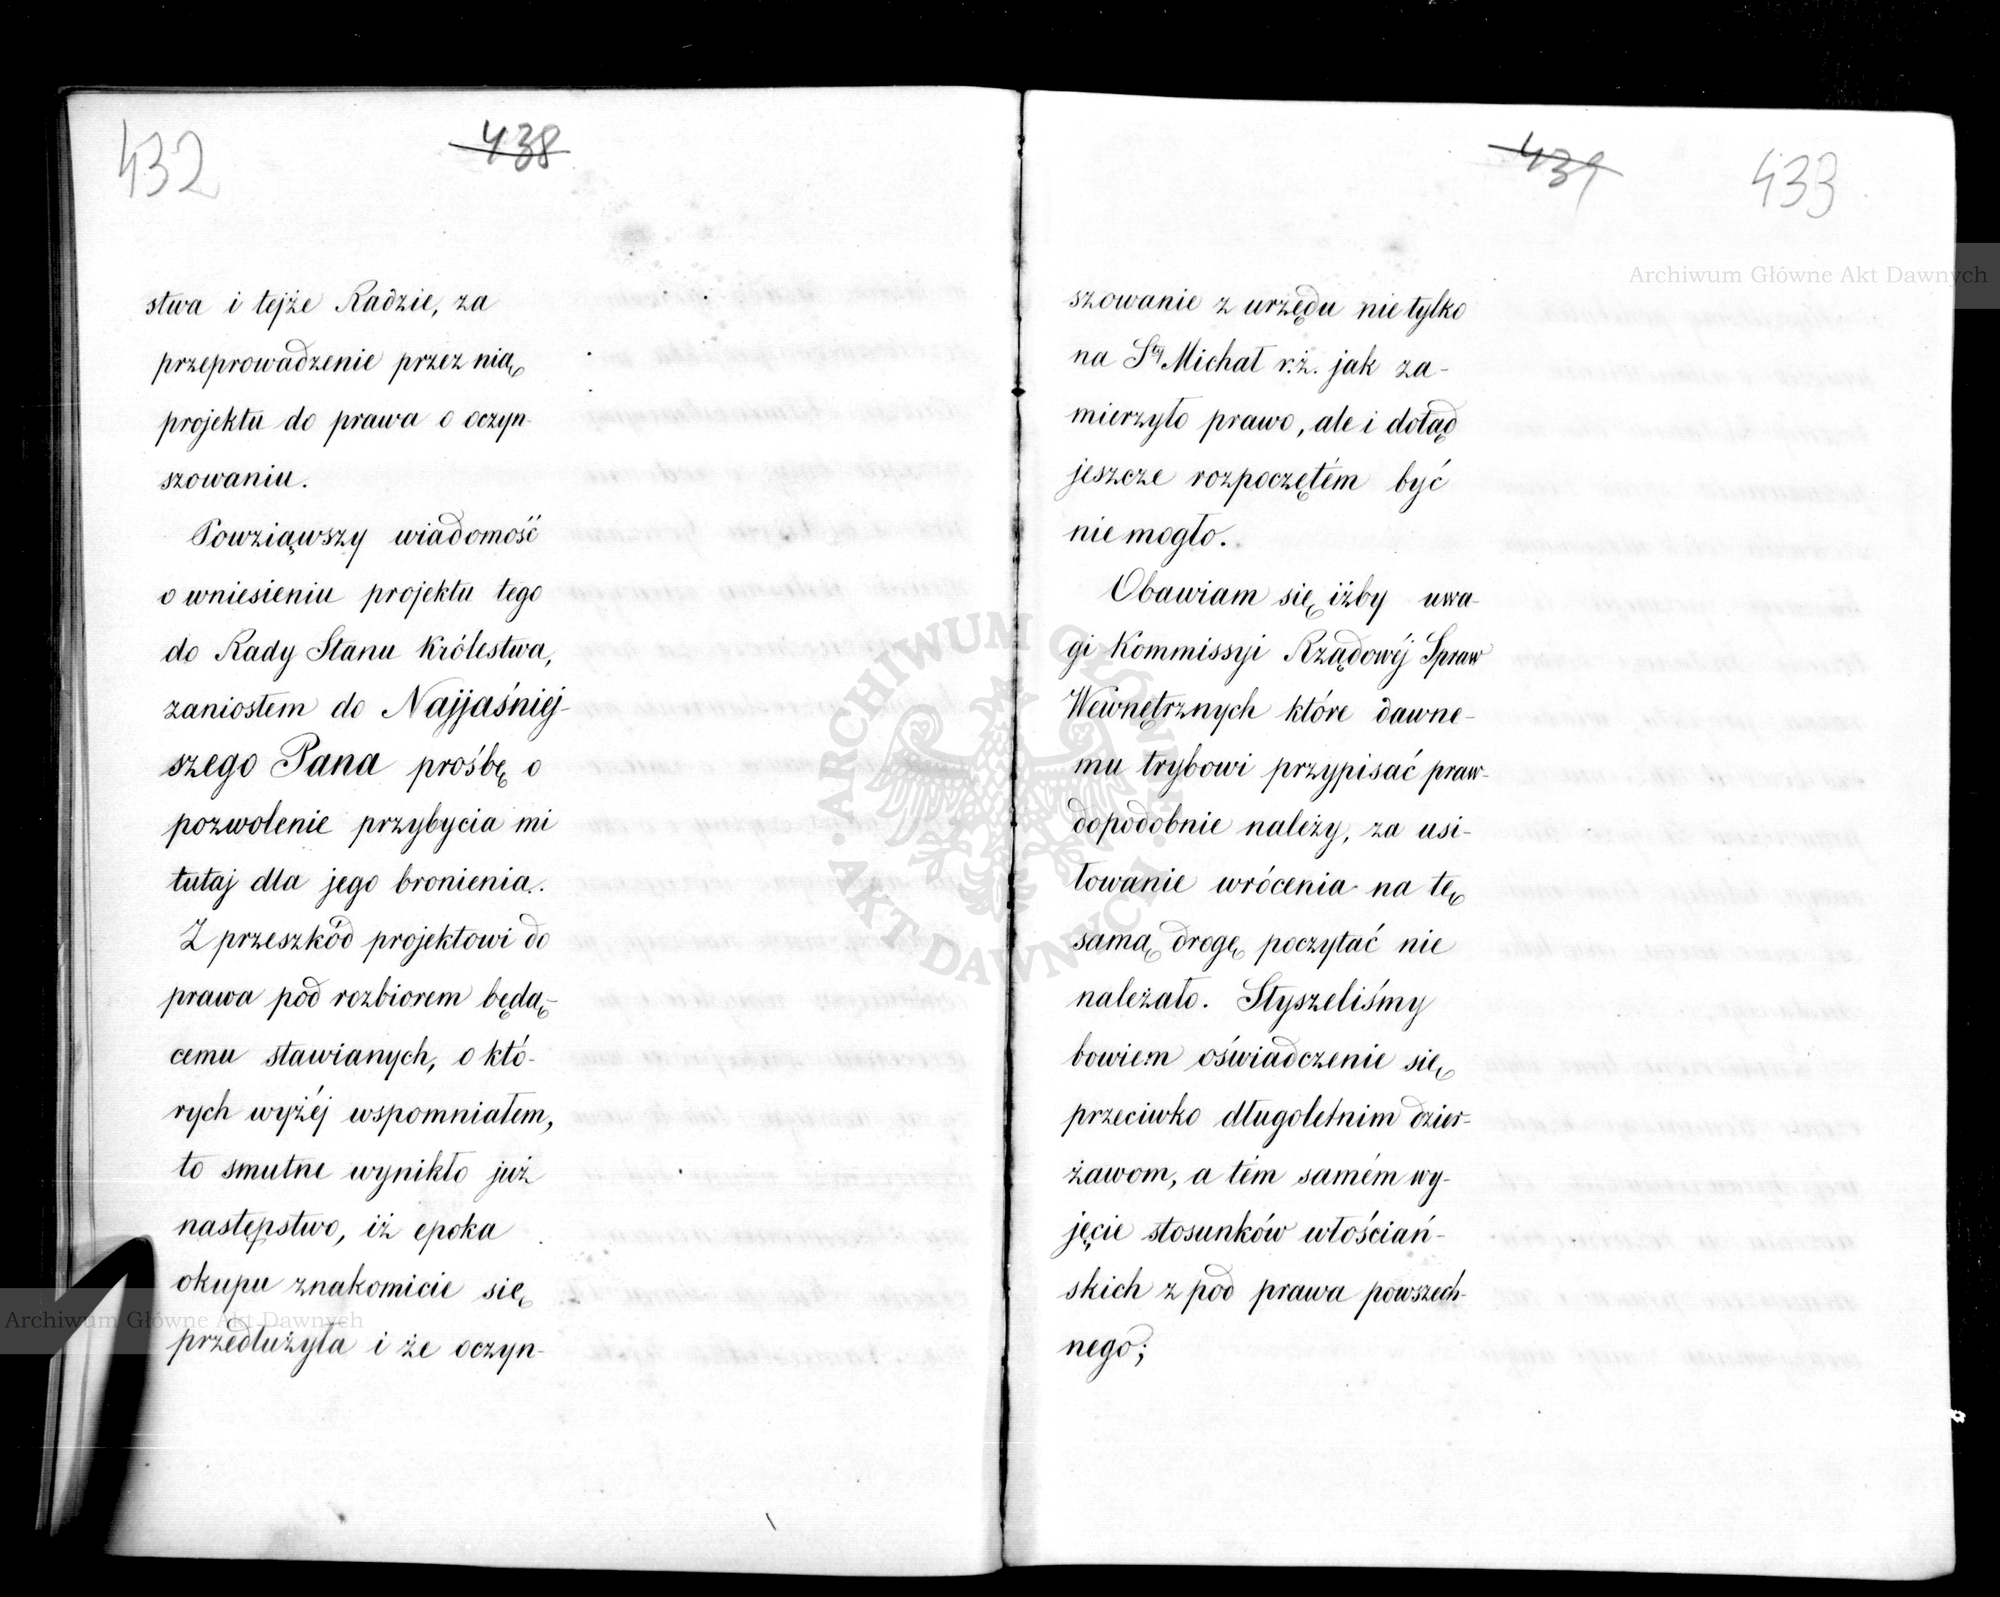 432
438
stwa i tejże Radzie, za
przeprowadzenie przez nią
projektu do prawa o oczyn-
szowaniu.
Powziąwszy wiadomość
o wniesieniu projektu tego
do Rady Stanu Królestwa,
zaniosłem do Najjaśniej-
szego Pana prośbę o
pozwolenie przybycia mi
tutaj dla jego bronienia.
Z przeszkód projektowi do
prawa pod rozbiorem będą-
cemu stawianych, o któ-
rych wyżéj wspomniałem,
to smutne wynikło już
następstwo, iż epoka
okupu znakomicie się
przedłużyła i że oczyn-
439
433
szowanie z urzędu nie tylko
na Sty Michał r.ż. jak za-
mierzyło prawo, ale i dotąd
jeszcze rozpoczętém być
nie mogło.
Obawiam się iżby uwa-
gi Kommissyi Rządowéj Spraw
Wewnętrznych które dawne-
mu trybowi przypisać praw-
dopodobnie należy, za usi-
łowanie wrócenia na tę
samą drogę poczytać nie
należało. Słyszeliśmy
bowiem oświadczenie się
przeciwko długoletnim dzier-
żawom, a tém samém wy-
jęcie stosunków włościań-
skich z pod prawa powszech-
nego;
Archiwum Główne Akt Dawnych
ARCHIWUM GŁÓWNE AKT DAWNYCH
Archiwum Główne Akt Dawnych